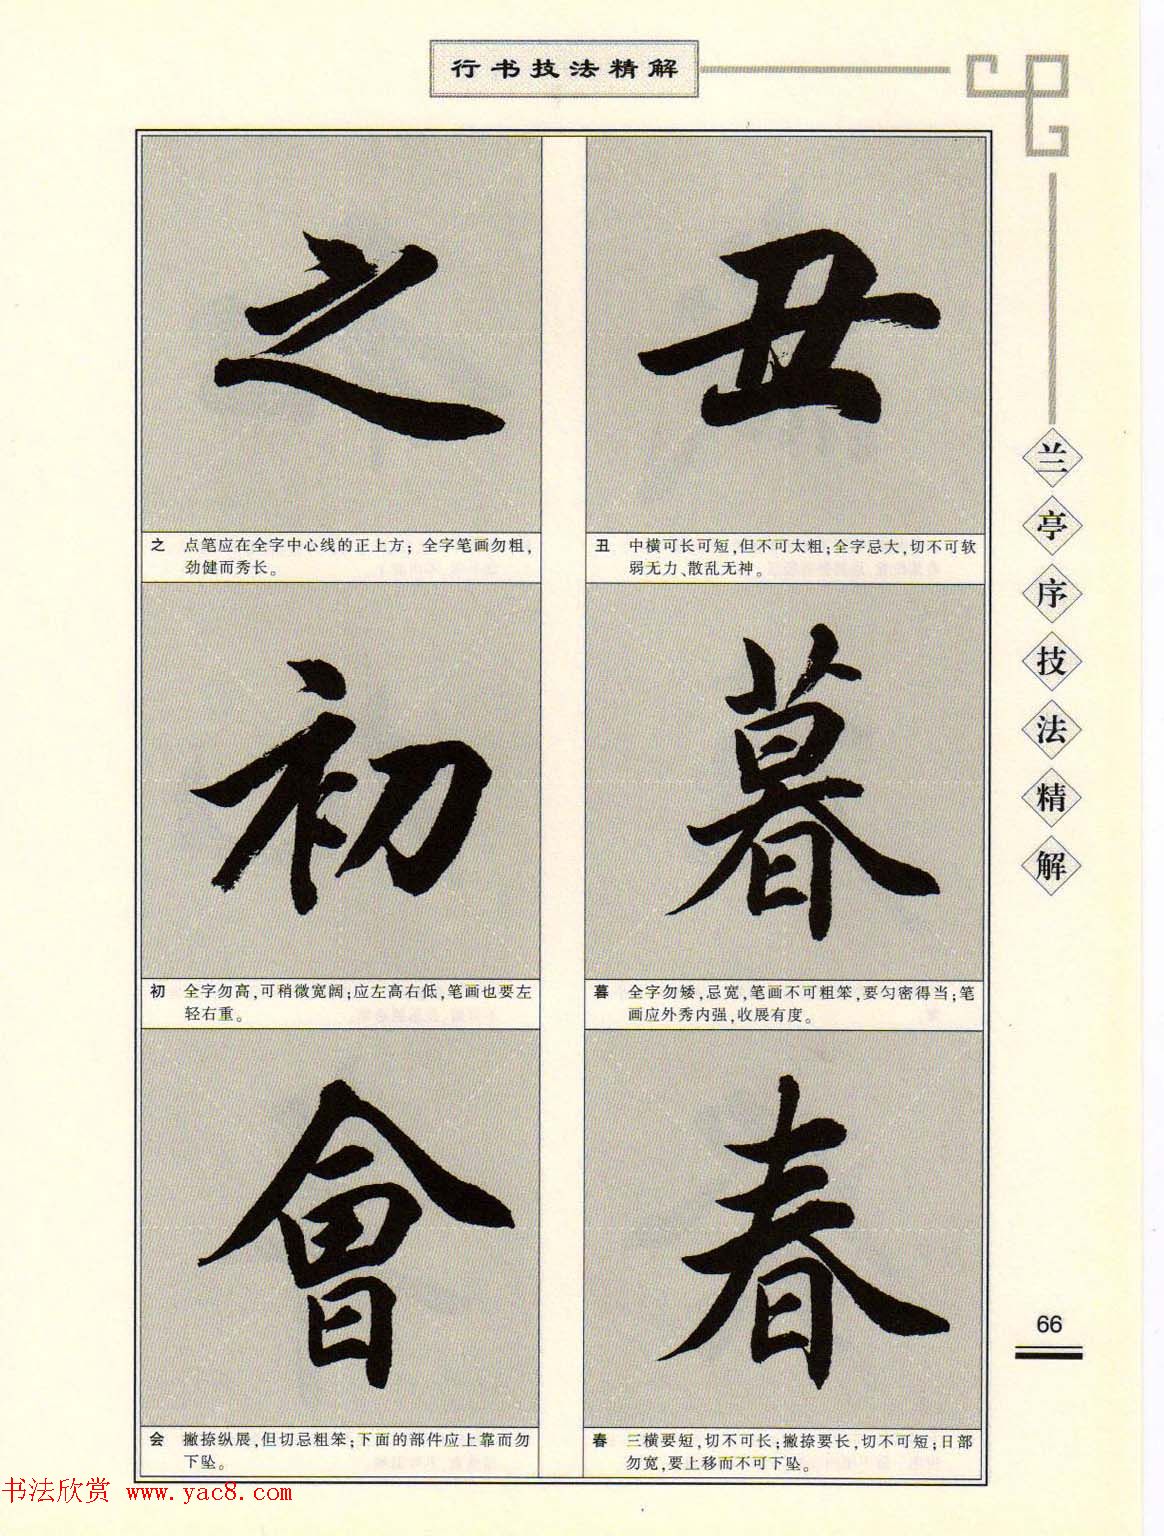 行书技法精解
丑
丑 中横可长可短,但不可太粗;全字忌大,切不可软
弱无力、散乱无神。
暮
暮 全字勿矮,忌宽,笔画不可粗笨,要匀密得当;笔
画应外秀内强,收展有度。
春
春 三横要短,切不可长;撇捺要长,切不可短;日部
勿宽,要上移而不可下坠。
之
之 点笔应在全字中心线的正上方;全字笔画勿粗,
劲健而秀长。
初
初 全字勿高,可稍微宽阔;应左高右低,笔画也要左
轻右重。
會
会 撇捺纵展,但切忌粗笨;下面的部件应上靠而勿
下坠。
兰亭序技法精解
66
书法欣赏 www.yac8.com